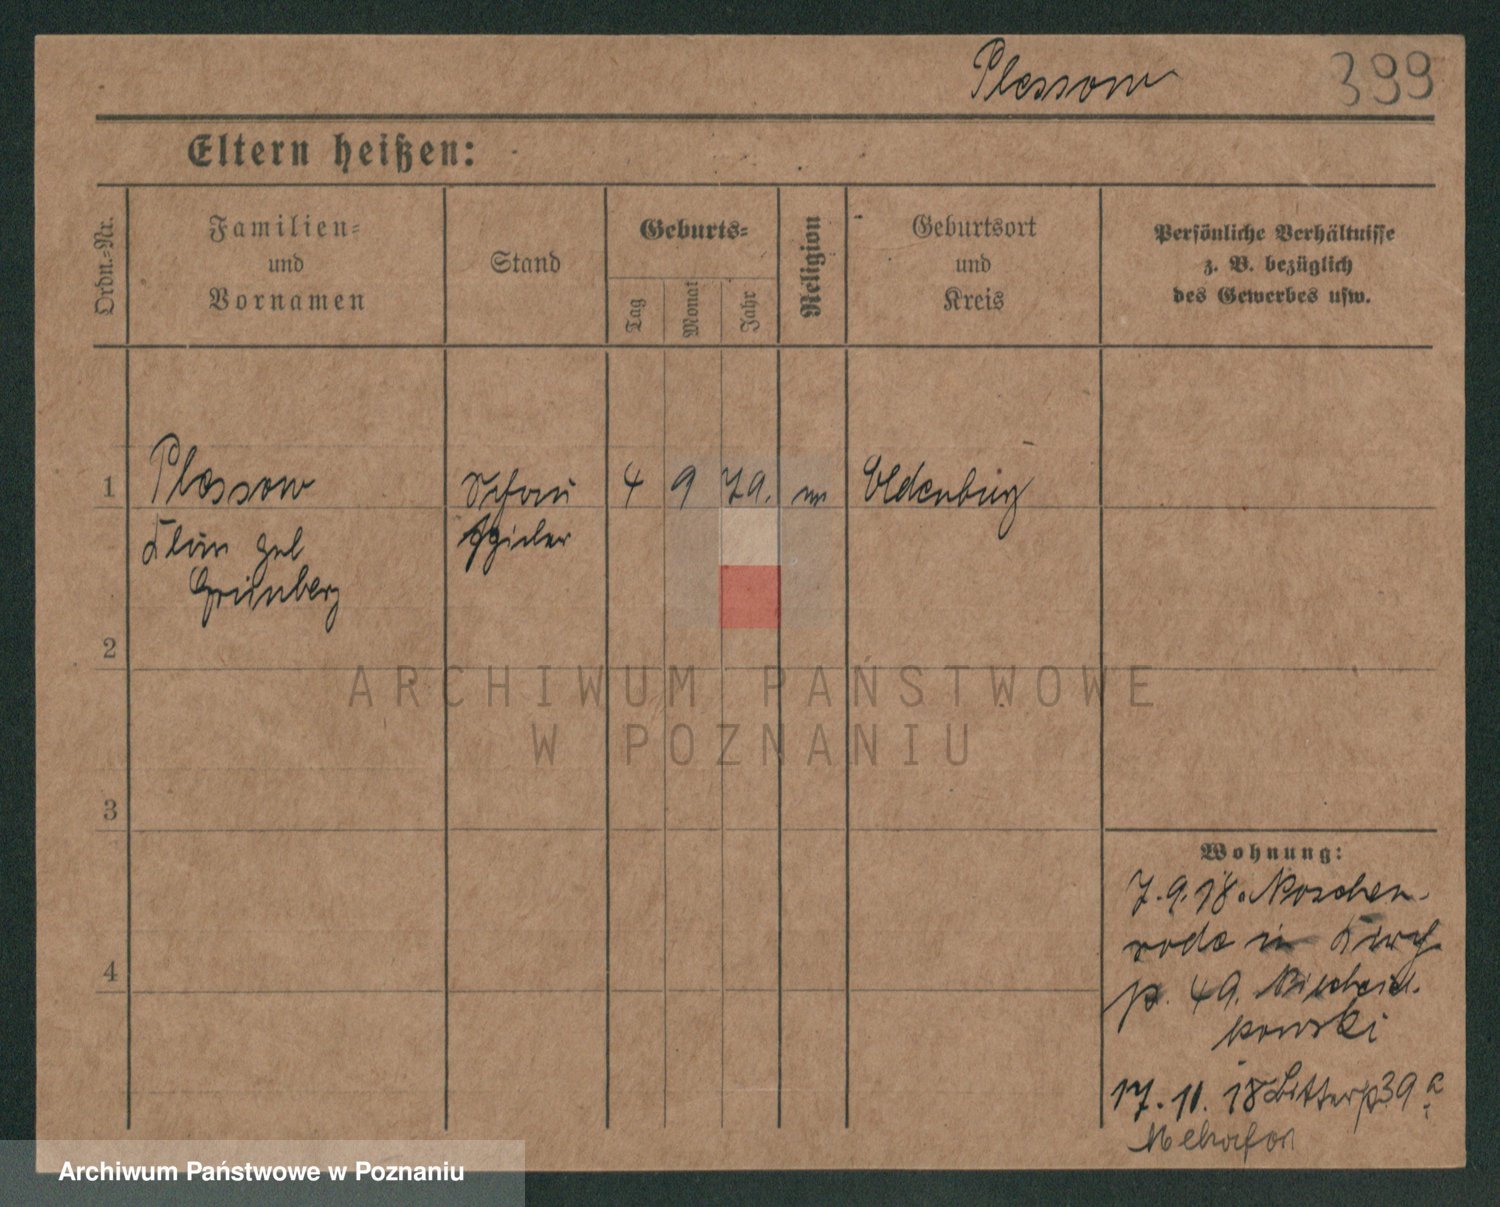 Plessow 399
Eltern heißen:
Ordn.-Nr.
Familien-
und
Vornamen
Stand
Geburts-
Tag
Monat
Jahr
Religion
Geburtsort
und
Kreis
Persönliche Verhältnisse
z. B. bezüglich
des Gewerbes usw.
1 Plessow 4 9 79. Oldenburg
geb
Grünberg
2
3
4
ARCHIWUM PAŃSTWOWE
W POZNANIU
Wohnung:
7.9.18.
rode in
p. 49.
kowski
17.11.18 Ritterp 39 a
Archiwum Państwowe w Poznaniu